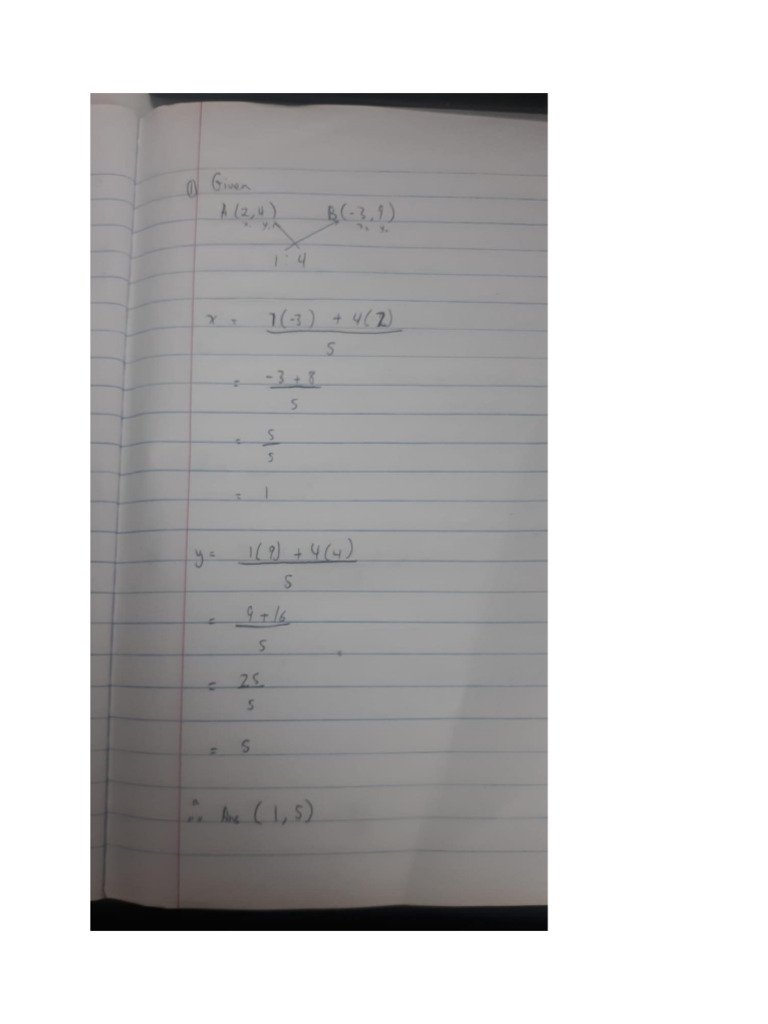 ① Given
A(2,4) B(-3,9)
x₁ y₁ x₂ y₂
1 : 4
x = 1(-3) + 4(2)
5
= -3 + 8
5
= 5
5
= 1
y = 1(9) + 4(4)
5
= 9 + 16
5
= 25
5
= 5
∴ Ans (1,5)